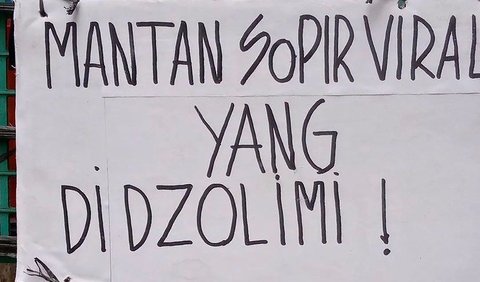 MANTAN SOPIR VIRAL
YANG
DIDZOLIMI !